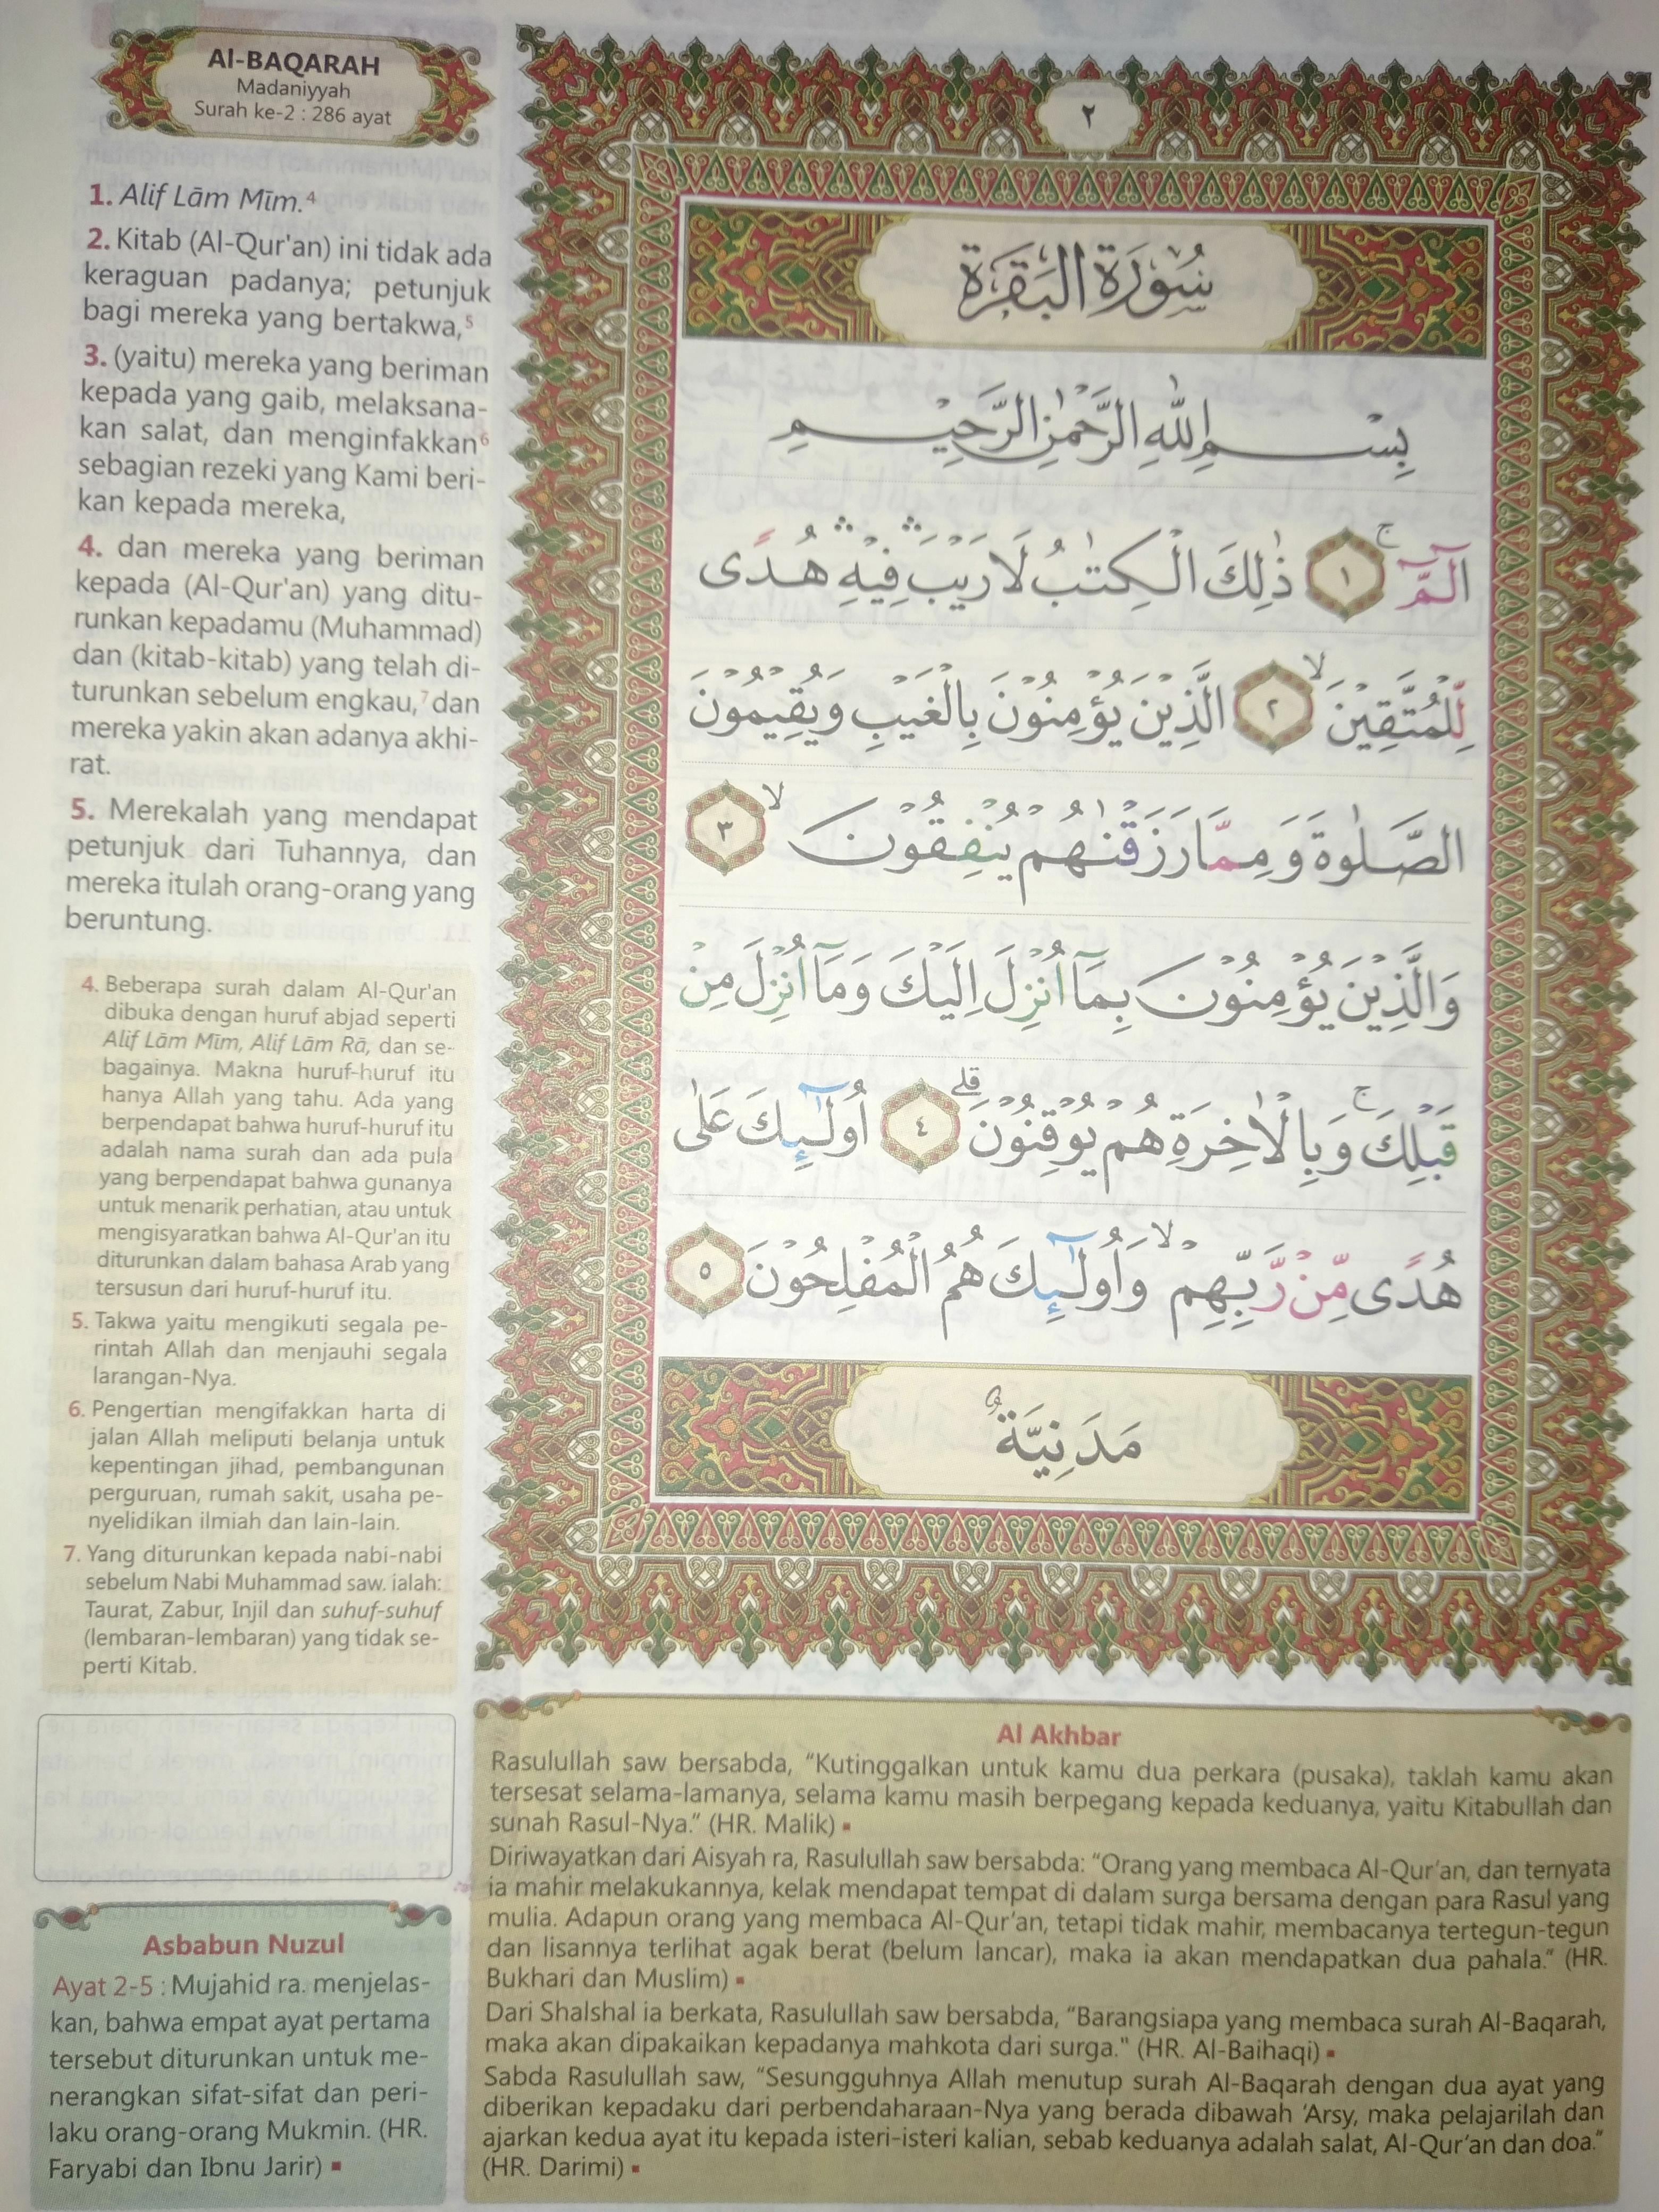 Al-BAQARAH
Madaniyyah
Surah ke-2 : 286 ayat
1. Alif Lām Mīm.⁴
2. Kitab (Al-Qur'an) ini tidak ada
keraguan padanya; petunjuk
bagi mereka yang bertakwa,⁵
3. (yaitu) mereka yang beriman
kepada yang gaib, melaksana-
kan salat, dan menginfakkan⁶
sebagian rezeki yang Kami beri-
kan kepada mereka,
4. dan mereka yang beriman
kepada (Al-Qur'an) yang ditu-
runkan kepadamu (Muhammad)
dan (kitab-kitab) yang telah di-
turunkan sebelum engkau,⁷ dan
mereka yakin akan adanya akhi-
rat.
5. Merekalah yang mendapat
petunjuk dari Tuhannya, dan
mereka itulah orang-orang yang
beruntung.
4. Beberapa surah dalam Al-Qur'an
dibuka dengan huruf abjad seperti
Alif Lām Mīm, Alif Lām Rā, dan se-
bagainya. Makna huruf-huruf itu
hanya Allah yang tahu. Ada yang
berpendapat bahwa huruf-huruf itu
adalah nama surah dan ada pula
yang berpendapat bahwa gunanya
untuk menarik perhatian, atau untuk
mengisyaratkan bahwa Al-Qur'an itu
diturunkan dalam bahasa Arab yang
tersusun dari huruf-huruf itu.
5. Takwa yaitu mengikuti segala pe-
rintah Allah dan menjauhi segala
larangan-Nya.
6. Pengertian mengifakkan harta di
jalan Allah meliputi belanja untuk
kepentingan jihad, pembangunan
perguruan, rumah sakit, usaha pe-
nyelidikan ilmiah dan lain-lain.
7. Yang diturunkan kepada nabi-nabi
sebelum Nabi Muhammad saw. ialah:
Taurat, Zabur, Injil dan suhuf-suhuf
(lembaran-lembaran) yang tidak se-
perti Kitab.
Asbabun Nuzul
Ayat 2-5 : Mujahid ra. menjelas-
kan, bahwa empat ayat pertama
tersebut diturunkan untuk me-
nerangkan sifat-sifat dan peri-
laku orang-orang Mukmin. (HR.
Faryabi dan Ibnu Jarir) ▪
٢
سُورَةُ الْبَقَرَةِ
بِسْمِ اللّٰهِ الرَّحْمٰنِ الرَّحِيْمِ
الۤمّۤ ۚ ١ ذٰلِكَ الْكِتٰبُ لَا رَيْبَ ۛ فِيْهِ ۛ هُدًى
لِّلْمُتَّقِيْنَ ۙ ٢ الَّذِيْنَ يُؤْمِنُوْنَ بِالْغَيْبِ وَيُقِيْمُوْنَ
الصَّلٰوةَ وَمِمَّا رَزَقْنٰهُمْ يُنْفِقُوْنَ ۙ ٣
وَالَّذِيْنَ يُؤْمِنُوْنَ بِمَآ اُنْزِلَ اِلَيْكَ وَمَآ اُنْزِلَ مِنْ
قَبْلِكَ ۚ وَبِالْاٰخِرَةِ هُمْ يُوْقِنُوْنَ ۗ ٤ اُولٰۤىِٕكَ عَلٰى
هُدًى مِّنْ رَّبِّهِمْ ۙ وَاُولٰۤىِٕكَ هُمُ الْمُفْلِحُوْنَ ٥
مَدَنِيَّةٌ
Al Akhbar
Rasulullah saw bersabda, “Kutinggalkan untuk kamu dua perkara (pusaka), taklah kamu akan
tersesat selama-lamanya, selama kamu masih berpegang kepada keduanya, yaitu Kitabullah dan
sunah Rasul-Nya.” (HR. Malik) ▪
Diriwayatkan dari Aisyah ra, Rasulullah saw bersabda: “Orang yang membaca Al-Qur’an, dan ternyata
ia mahir melakukannya, kelak mendapat tempat di dalam surga bersama dengan para Rasul yang
mulia. Adapun orang yang membaca Al-Qur’an, tetapi tidak mahir, membacanya tertegun-tegun
dan lisannya terlihat agak berat (belum lancar), maka ia akan mendapatkan dua pahala.” (HR.
Bukhari dan Muslim) ▪
Dari Shalshal ia berkata, Rasulullah saw bersabda, “Barangsiapa yang membaca surah Al-Baqarah,
maka akan dipakaikan kepadanya mahkota dari surga." (HR. Al-Baihaqi) ▪
Sabda Rasulullah saw, “Sesungguhnya Allah menutup surah Al-Baqarah dengan dua ayat yang
diberikan kepadaku dari perbendaharaan-Nya yang berada dibawah ‘Arsy, maka pelajarilah dan
ajarkan kedua ayat itu kepada isteri-isteri kalian, sebab keduanya adalah salat, Al-Qur’an dan doa.”
(HR. Darimi) ▪